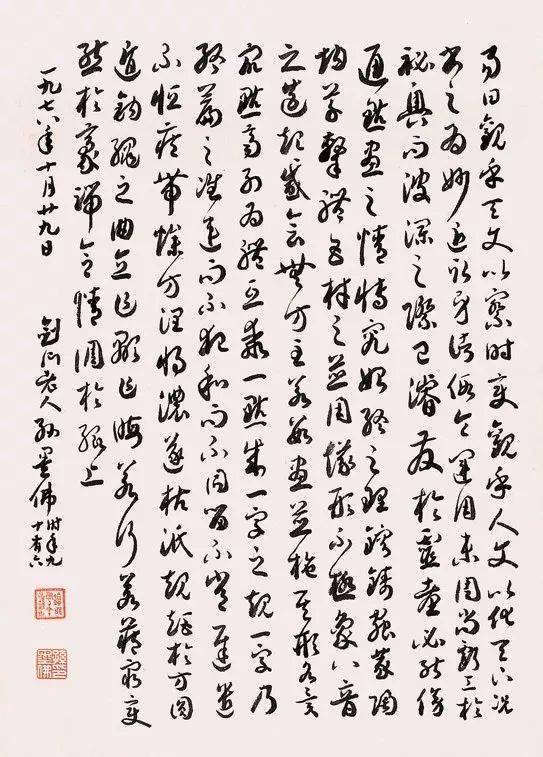 易曰觀乎天文以察时变觀乎人文以化天下況
書之為妙近取諸身假令運用未周尚虧工於
秘奧而波瀾之際已濬發於靈臺必能傍
通點畫之情博究始終之理鎔鑄蟲篆陶
均草隸體五材之並用儀形不極象八音
之迭起感會無方至若數畫並施其形各異
眾點齊列為體互乖一點成一字之規一字乃
終篇之準違而不犯和而不同留不常遲遣
不恒疾帶燥方潤將濃遂枯泯規矩於方圓
遁鉤繩之曲直乍顯乍晦若行若藏窮变
態於毫端合情調於紙上
一九七八年十月廿九日
劍門老人孫墨佛时年九
十有六